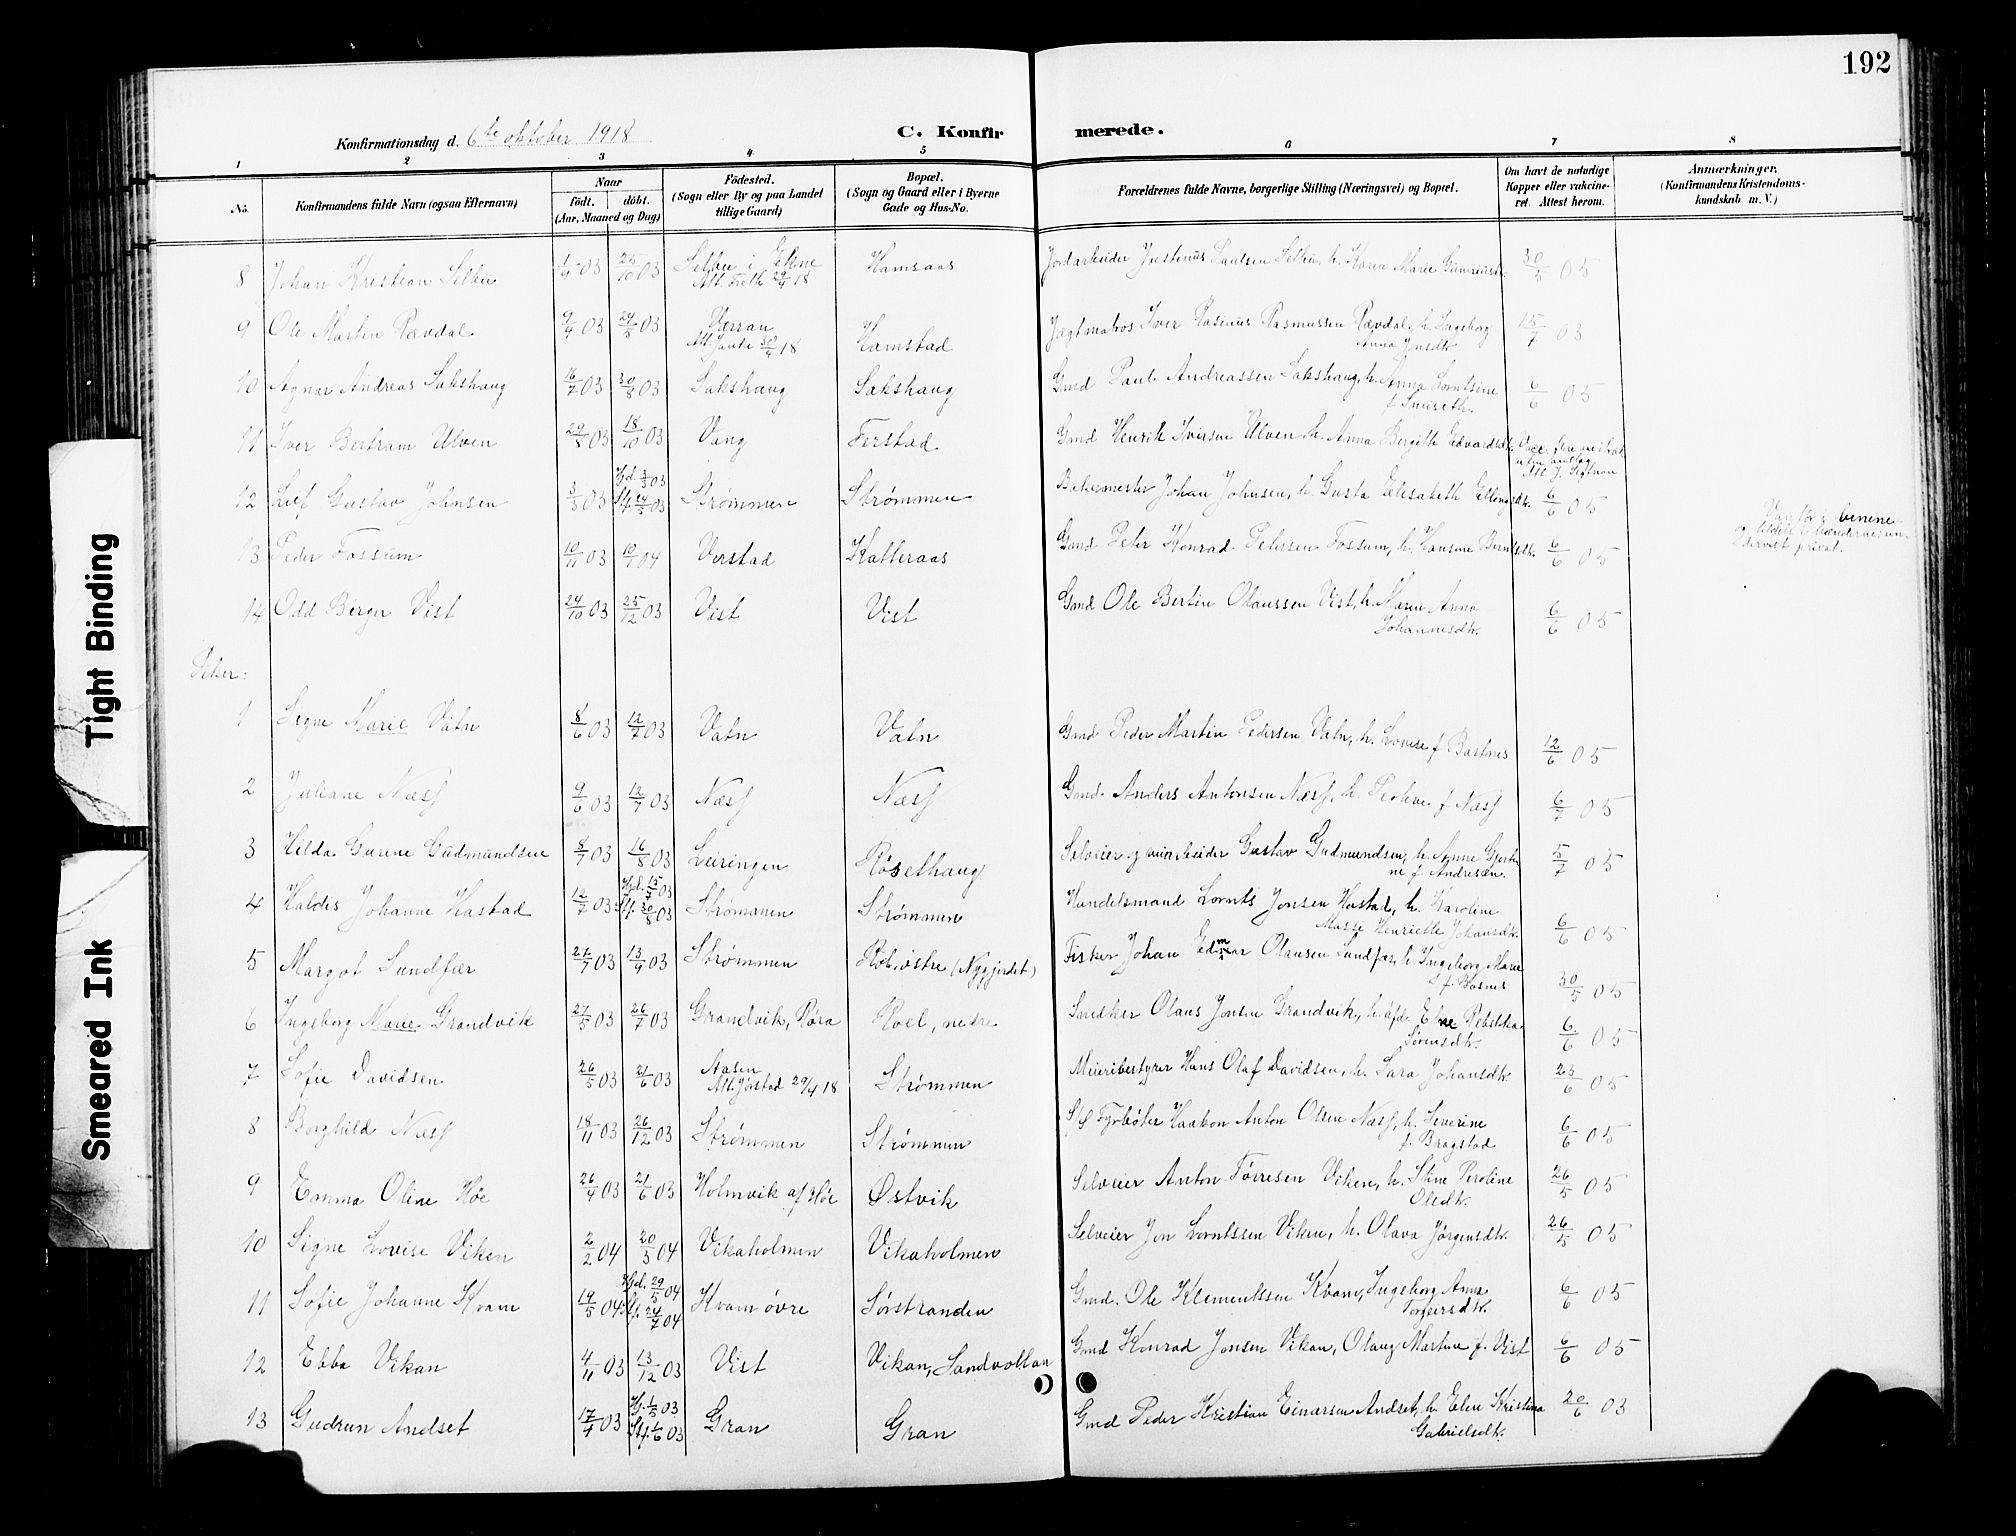 192
Konfirmationsdag d. 6te oktober 1918
C. Konfirmerede.
1 2 3 4 5 6 7 8
No.
Konfirmandens fulde Navn (ogsaa Efternavn)
Naar
født. døbt.
(Aar, Maaned og Dag)
Fødested.
(Sogn eller By og paa Landet
tillige Gaard)
Bopæl.
(Sogn og Gaard eller i Byerne
Gade og Hus-No.
Forældrenes fulde Navne, borgerlige Stilling (Næringsvei) og Bopæl.
Om havt de naturlige
Kopper eller vakcine-
ret. Attest herom.
Anmærkninger,
(Konfirmandens Kristendoms-
kundskab m. V.)
8 Johan Kristian Selbu 1/9 03 25/10 03 Selbu i Ekne Hamsaas Jordarbeider Justinus Paulsen Selbu, h. Karen Marie 30/5 05
Att. 29/4 18
9 Ole Martin Rævdal 9/4 03 24/5 03 Værran Hamstad Jagtmatros Iver Rasinus Rasmussen Rævdal, h. Ingeborg 15/7 03
Att. 30/4 18 Anna Jonsdtr.
10 Agnar Andreas Sakshaug 16/7 03 30/8 03 Sakshaug Sakshaug Gmd Paul Andreassen Sakshaug, h. Anna Lorntsine 6/6 05
11 Iver Bertram Ulven 29/8 03 18/10 03 Vang Ferstad Gmd Henrik Iversen Ulven, h. Anna Bergith Edvardsdtr.
12 Leif Gustav Johnsen 3/3 03 Hjd. 3/3 03 Strømmen Strømmen Bakermester Johan Johnsen, h. Gusta Elisabeth Ellingsdtr. 6/6 05
Stf. 24/5 03
13 Peder Fossum 10/11 03 10/1 04 Verstad Katteraas Gmd Peter Konrad Petersen Fossum, h. Hansine Berntsdtr. 6/6 05 Vanfør i benene
dervist privat.
14 Odd Birger Vist 24/10 03 25/12 03 Vist Vist Gmd Ole Bertin Olaussen Vist, h. Maren Anna 6/6 05
Johannesdtr.
Piker:
1 Signe Marie Vatn 8/6 03 12/7 03 Vatn Vatn Gmd Peder Martin Pedersen Vatn, h. Lovise f. Bartnes 12/6 05
2 Juliane Næss 9/6 03 12/7 03 Næss Næss Gmd. Anders Antonsen Næss, h. Peoline f. Næss 6/7 05
3 Hilda Gurine Gudmundsen 8/7 03 16/8 03 Leiringen Røsethaug Selveier og murarbeider Gustav Gudmundsen, h. Anne Gjerti- 5/7 05
ne f. Andresen.
4 Haldis Johanne Hastad 12/7 03 Hjd. 15/7 03 Strømmen Strømmen Handelsmand Lornts Jonsen Hastad, h. Karoline 6/6 05
Stf. 30/8 03 Masse Henriette Johansdtr.
5 Margot Sundfær 27/7 03 13/9 03 Strømmen Rol, østre (Nygjerdet) Fisker Johan Edmar Olausen Sundfær, h. Ingeborg Marie 30/5 05
f. Bosnes
6 Ingeborg Marie Grandvik 27/5 03 26/7 03 Grandvik, Røra Roel, nedre Snedker Olaus Jonsen Grandvik, h. afd. Elne Rebekka 6/6 05
Sørensdtr.
7 Sofie Davidsen 26/5 03 21/6 03 Aasen Strømmen Meieribestyrer Hans Olaf Davidsen, h. Sara Johansdtr. 23/6 05
Att. Jøstad 29/4 18
8 Borghild Næss 18/11 03 26/12 03 Strømmen Strømmen S/S Fyrbøter Haakon Anton Olsen Næss, h. Severine 6/6 05
f. Bragstad
9 Emma Oline Høe 26/4 03 21/6 03 Holmvik af Høe Østvik Selveier Anton Tørresen Viken, h. Stine Peroline 26/5 05
Olsdtr.
10 Signe Lovise Viken 2/2 04 20/3 04 Vikaholmen Vikaholmen Selveier Jon Lorntssen Viken, h. Olava Jørgensdtr. 26/5 05
11 Sofie Johanne Kvam 19/5 04 Hjd. 29/5 04 Kvam øvre Sørstranden Gmd. Ole Klementssen Kvam, Ingeborg Anna 6/6 05
Stf. 24/7 04 Torgeirsdtr.
12 Ebba Vikan 4/11 03 13/12 03 Vist Vikan, Sandvollan Gmd Konrad Jonsen Vikan, Olaug Martine f. Vist 6/6 05
13 Gudrun Andset 17/4 03 Hj. 1/5 03 Gran Gran Gmd Peder Kristian Einarsen Andset, h. Elen Kristina 20/6 03
Stf. 1/6 03 Gabrielsdtr.
Tight Binding
Smeared Ink